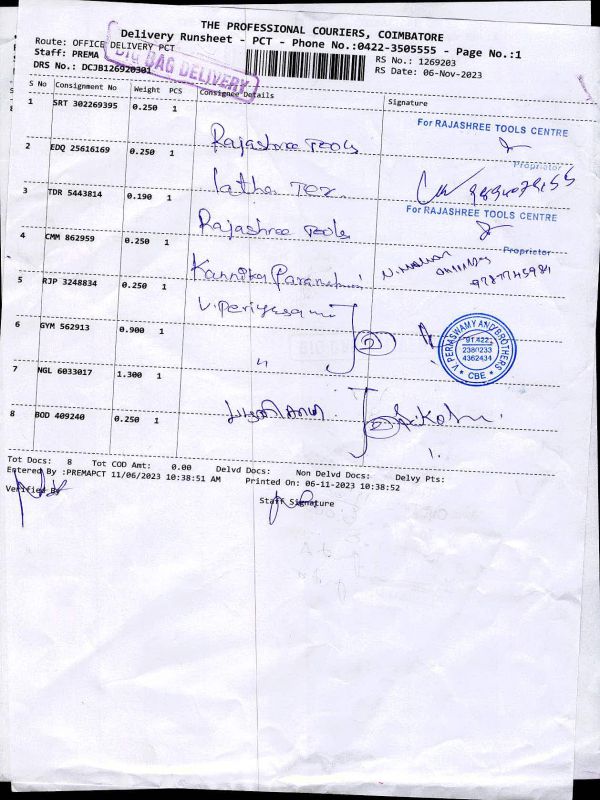 THE PROFESSIONAL COURIERS, COIMBATORE
Delivery Runsheet - PCT - Phone No.:0422-3505555 - Page No.:1
Route: OFFICE DELIVERY PCT
RS No.: 1269203
Staff: PREMA
BIG BAG DELIVERY
RS Date: 06-Nov-2023
DRS No.: DCJB126920301
S No Consignment No Weight PCS Consignee Details Signature
1 SRT 302269395 0.250 1 Rajashree Tools For RAJASHREE TOOLS CENTRE
Proprietor
2 EDQ 25616169 0.250 1 latha Tex.
3 TDR 5443814 0.190 1 Rajashree Tools For RAJASHREE TOOLS CENTRE
Proprietor
4 CMM 862959 0.250 1 Kannika Parameshwari
5 RJP 3248834 0.250 1 V. Periyasami
V. PERIASWAMY AND BROTHERS
91 422
2380233
4362434
* CBE *
6 GYM 562913 0.900 1 "
7 NGL 6033017 1.300 1
8 BOD 409240 0.250 1
Tot Docs: 8 Tot COD Amt: 0.00 Delvd Docs: Non Delvd Docs: Delvy Pts:
Entered By :PREMAPCT 11/06/2023 10:38:51 AM Printed On: 06-11-2023 10:38:52
Verified By
Staff Signature